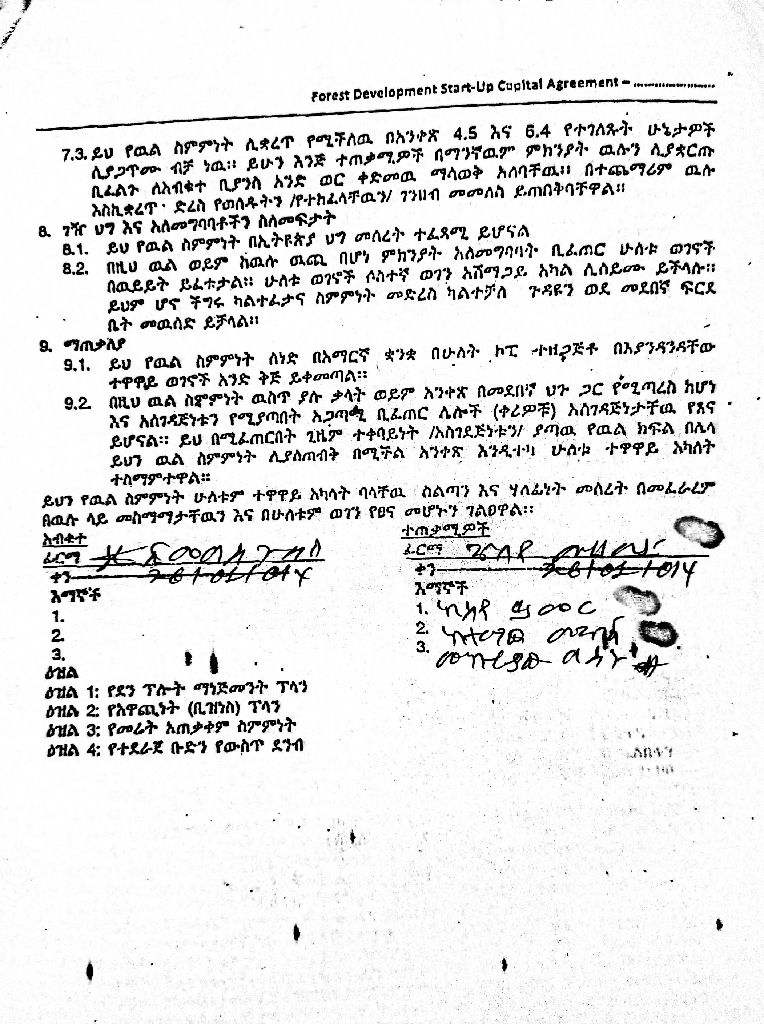 Forest Development Start-Up Capital Agreement – ......................
7.3. ይህ የዉል ስምምነት ሊቋረጥ የሚችለዉ በአንቀጽ 4.5 እና 6.4 የተገለጹት ሁኔታዎች
ሲያጋጥሙ ብቻ ነዉ። ይሁን እንጅ ተጠቃሚዎች በማንኛዉም ምክንያት ዉሉን ሊያቋርጡ
ቢፈልጉ ለአብቁተ ቢያንስ አንድ ወር ቀድመዉ ማሳወቅ አለባቸዉ። በተጨማሪም ዉሉ
እስኪቋረጥ ድረስ የወሰዱትን /የተከፈላቸዉን/ ገንዘብ መመለስ ይጠበቅባቸዋል።
8. ገዥ ህግ እና አለመግባባቶችን ስለመፍታት
8.1. ይህ የዉል ስምምነት በኢትዮጵያ ህግ መሰረት ተፈጻሚ ይሆናል
8.2. በዚህ ዉል ወይም ከዉሉ ዉጪ በሆነ ምክንያት አለመግባባት ቢፈጠር ሁለቱ ወገኖች
በዉይይት ይፈቱታል። ሁለቱ ወገኖች ሶስተኛ ወገን አሸማጋይ አካል ሊሰይሙ ይችላሉ።
ይህም ሆኖ ችግሩ ካልተፈታና ስምምነት መድረስ ካልተቻለ ጉዳዩን ወደ መደበኛ ፍርደ
ቤት መዉሰድ ይቻላል።
9. ማጠቃለያ
9.1. ይህ የዉል ስምምነት ሰነድ በአማርኛ ቋንቋ በሁለት ኮፒ ተዘጋጅቶ በእያንዳንዳቸው
ተዋዋይ ወገኖች አንድ ቅጅ ይቀመጣል።
9.2. በዚህ ዉል ስምምነት ዉስጥ ያሉ ቃላት ወይም አንቀጽ በመደበኛ ህጉ ጋር የሚጣረስ ከሆነ
እና አስገዳጅነቱን የሚያጣበት አጋጣሚ ቢፈጠር ሌሎች (ቀሪዎቹ) አስገዳጅነታቸዉ የጸና
ይሆናል። ይህ በሚፈጠርበት ጊዜም ተቀባይነት /አስገደጅነቱን/ ያጣዉ የዉል ክፍል በሌላ
ይህን ዉል ስምምነት ሊያስጠብቅ በሚችል አንቀጽ እንዲተካ ሁለቱ ተዋዋይ አካላት
ተስማምተዋል።
ይህን የዉል ስምምነት ሁለቱም ተዋዋይ አካላት ባላቸዉ ስልጣን እና ሃላፊነት መሰረት በመፈራረም
በዉሉ ላይ መስማማታቸዉን እና በሁለቱም ወገን የፀና መሆኑን ገልፀዋል።
አብቁተ
ፊርማ
ቀን
እማኞች
1.
2.
3.
ተጠቃሚዎች
ፊርማ
ቀን
እማኞች
1.
2.
3.
ዕዝል
ዕዝል 1: የደን ፕሎት ማነጅመንት ፕላን
ዕዝል 2: የአዋጪነት (ቢዝነስ) ፕላን
ዕዝል 3: የመሬት አጠቃቀም ስምምነት
ዕዝል 4: የተደራጀ ቡድን የውስጥ ደንብ